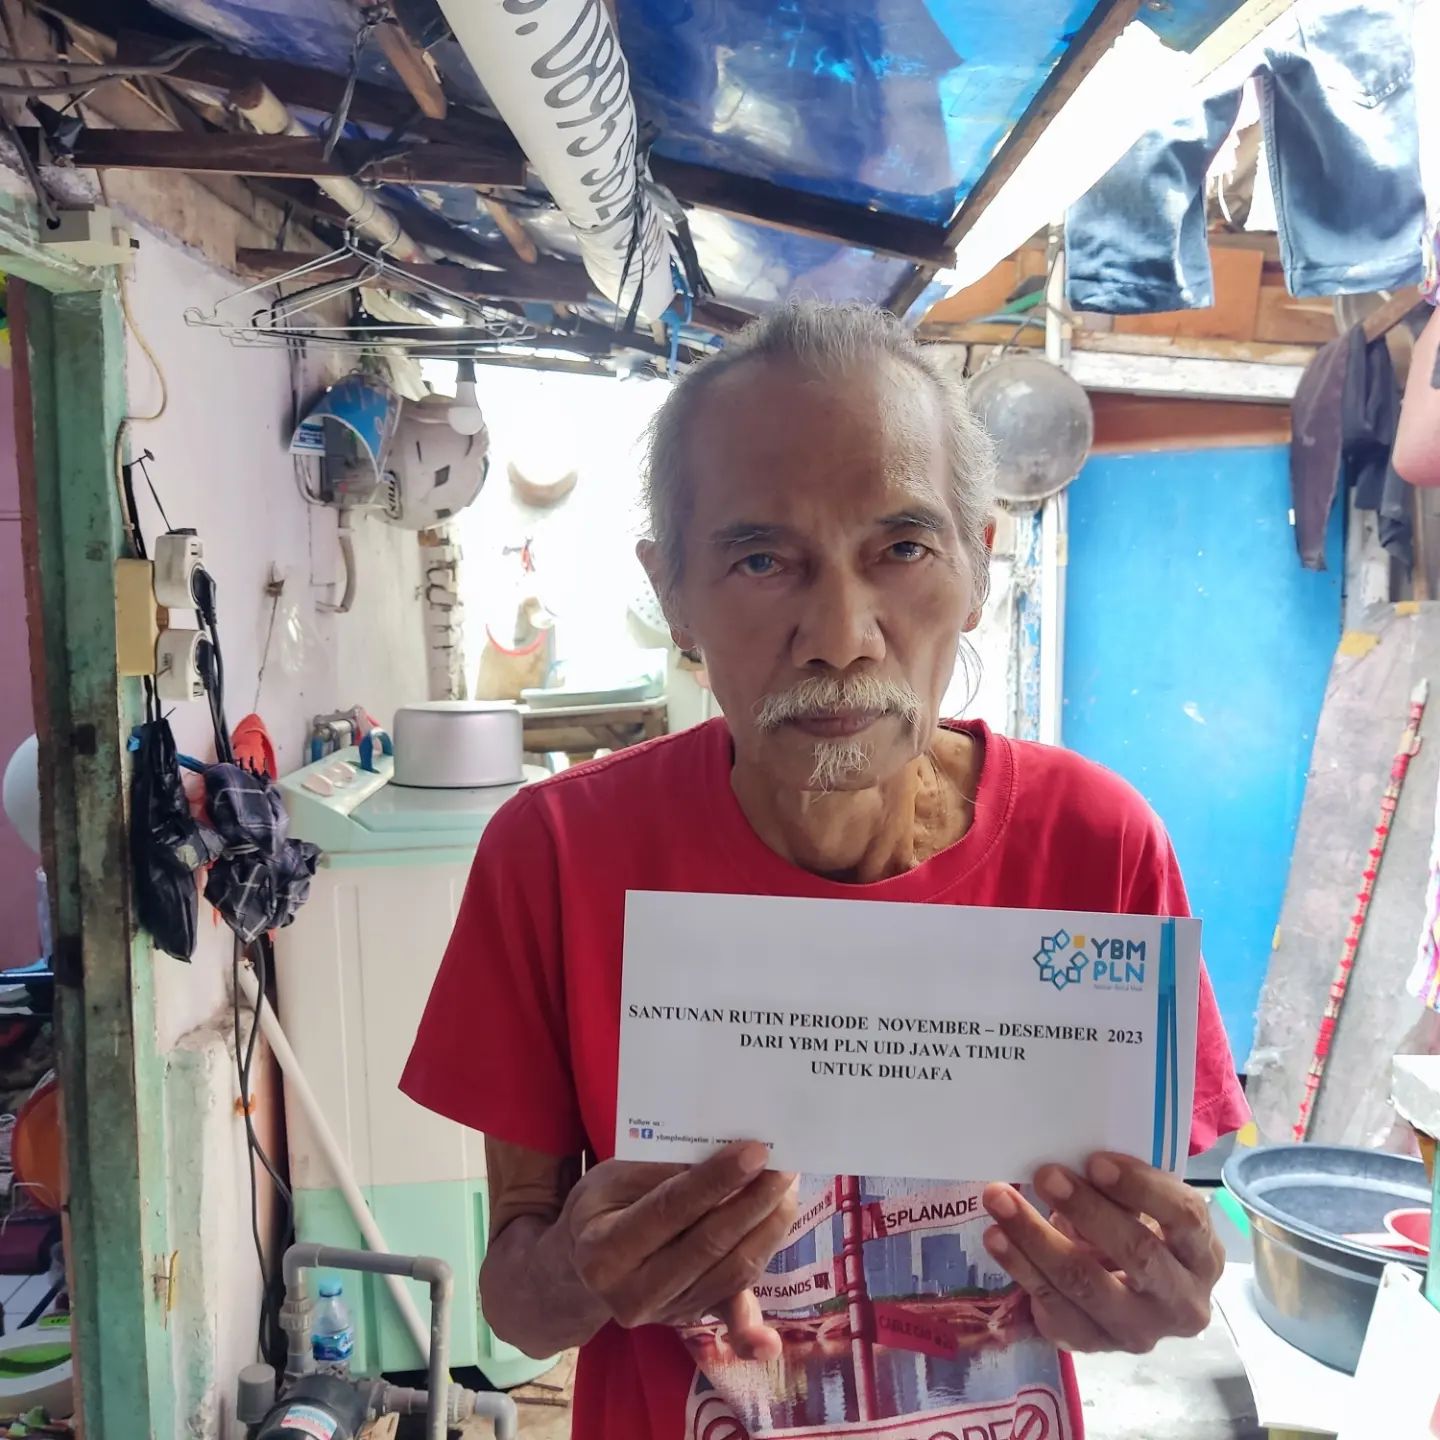 YBM
PLN
SANTUNAN RUTIN PERIODE NOVEMBER – DESEMBER 2023
DARI YBM PLN UID JAWA TIMUR
UNTUK DHUAFA
Follow us :
ESPLANADE
BAY SANDS
CABLE CAR